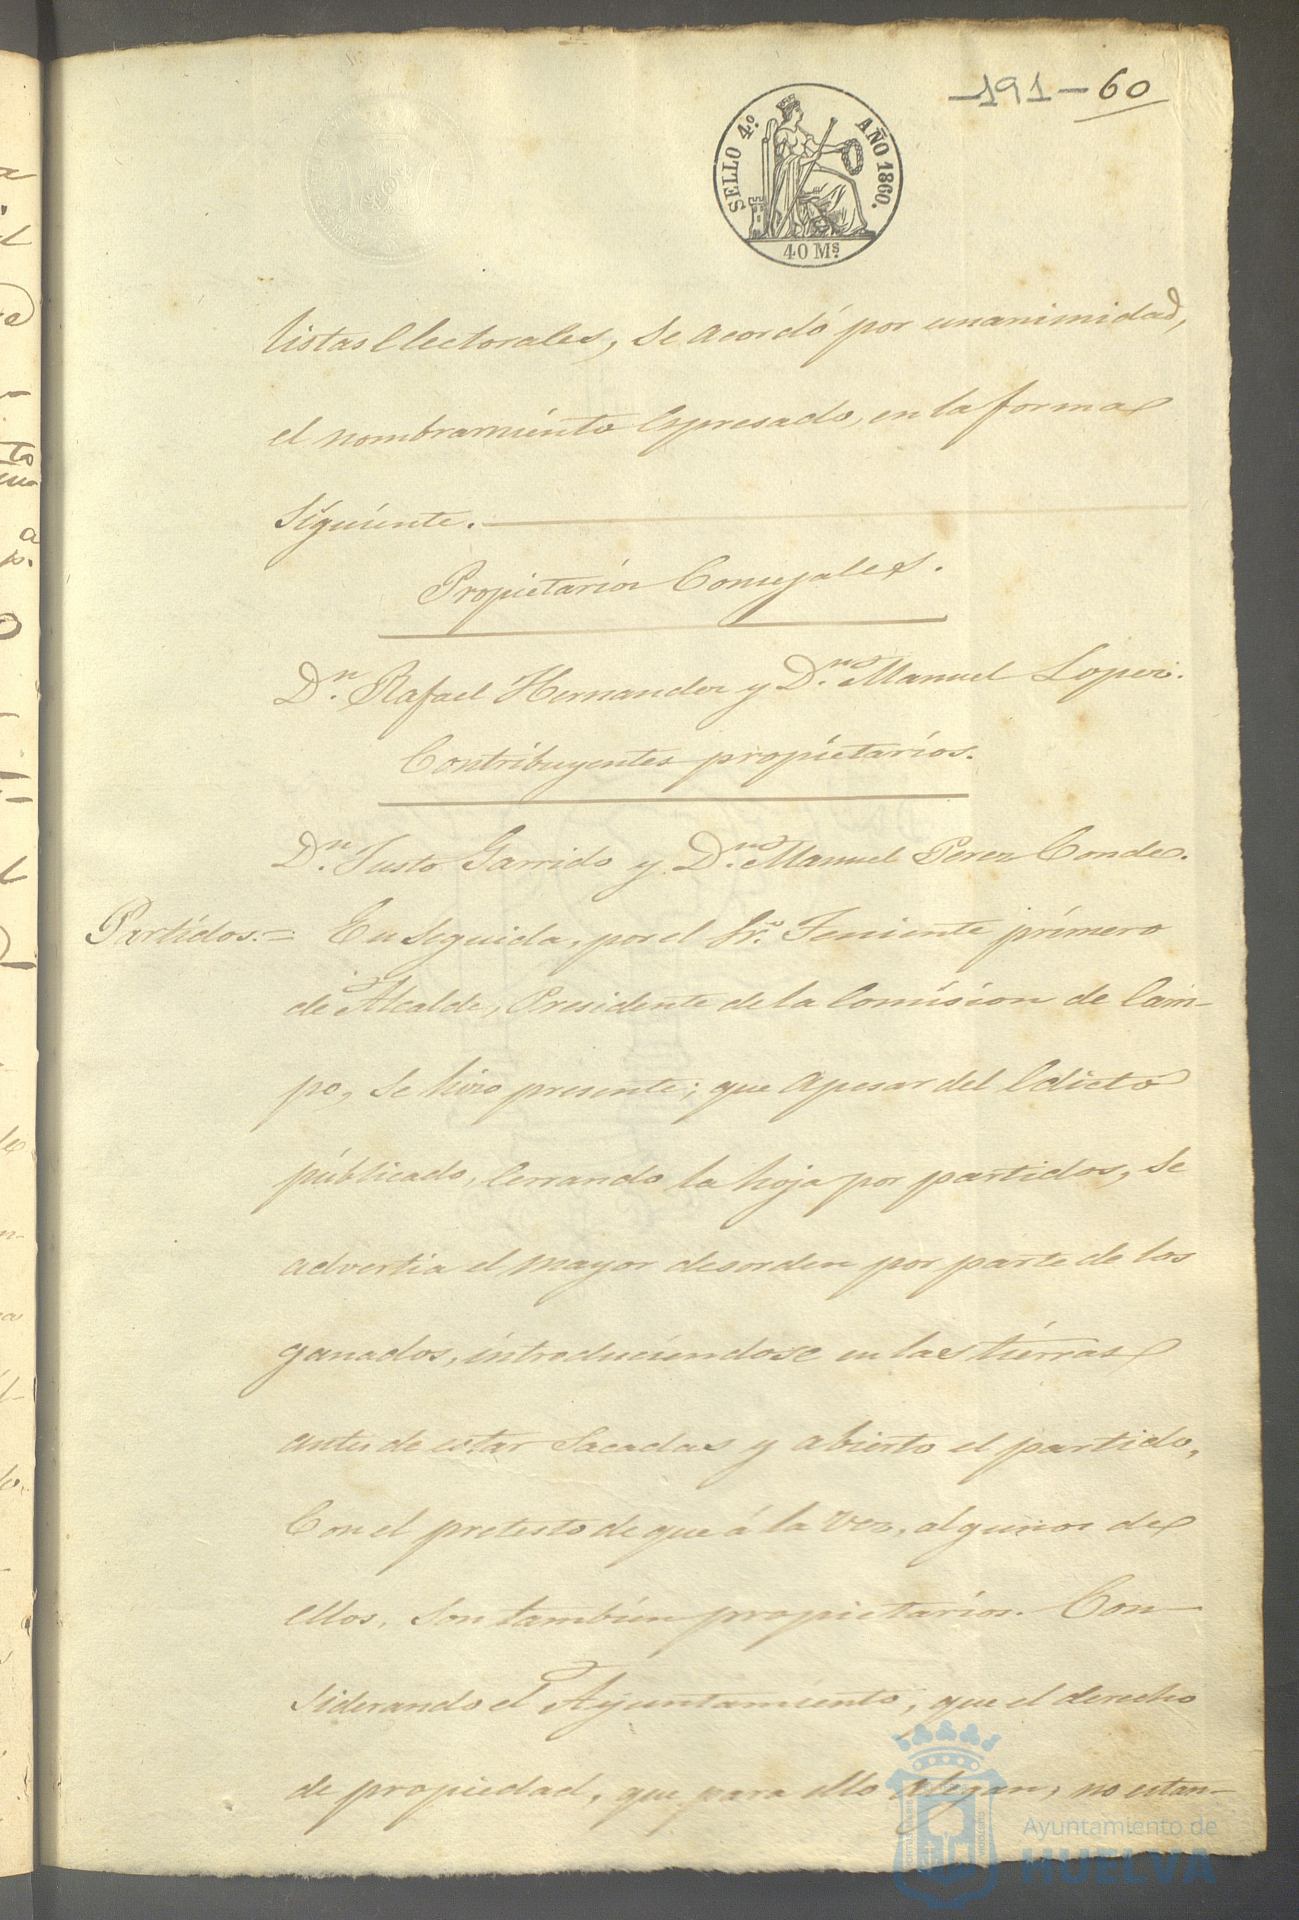 -191- 60
SELLO 4º AÑO 1860.
40 Mˢ
listas Electorales, Se acordó por unanimidad,
el nombramiento Espresado, en la forma
Siguiente.
Propietarios Consejales.
Dⁿ. Rafael Hernandez y Dⁿ. Manuel Lopez.
Contribuyentes propietarios.
Dⁿ. Justo Garrido y Dⁿ. Manuel Perez Conde.
Partidos.= En Seguida, por el Sr. Teniente primero
de Alcalde, Presidente de la Comision de Cam-
po, Se hizo presente; que apesar del Edicto
publicado, Cerrando la hoja por partidos, Se
advertia el mayor desorden por parte de los
ganados, introduciendose en las tierras
antes de estar Sacadas y abierto el partido,
Con el pretesto de que á la vez, algunos de
ellos, Son tambien propietarios. Con-
siderando el Ayuntamiento, que el derecho
de propiedad, que para ello alegan, no estan-
Ayuntamiento de
HUELVA